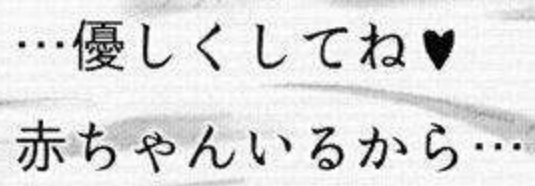 …優しくしてね♥
赤ちゃんいるから…